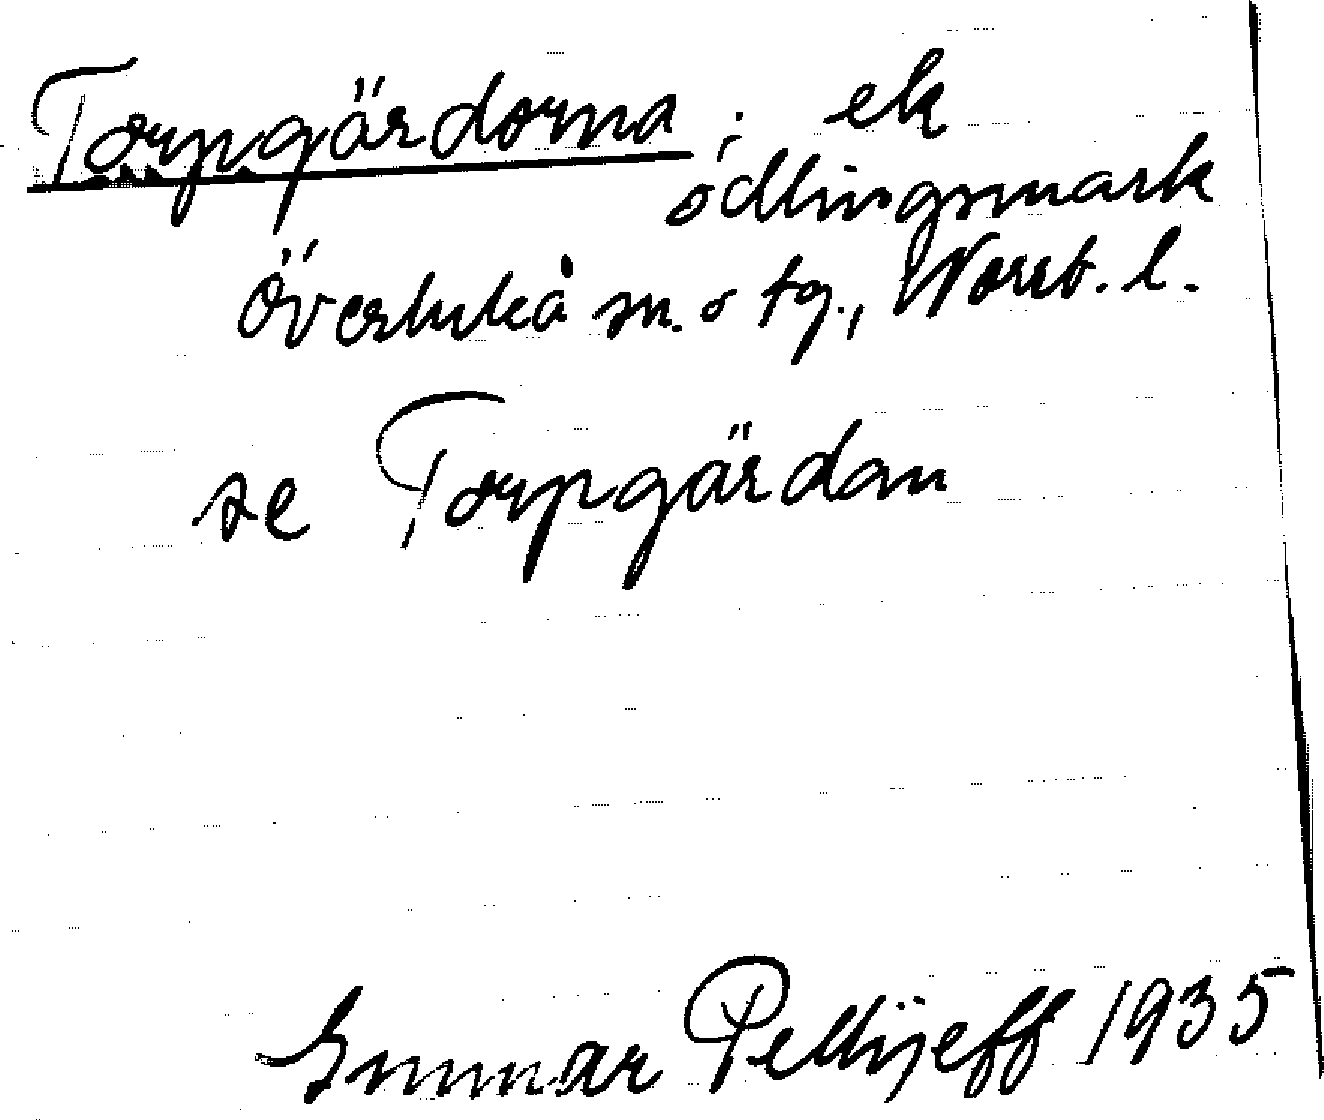 Torpgärdorna; ek
odlingsmark
Överluleå sn. o tg., Norrb. l.
se Torpgärdan
Gunnar Pellijeff 1935